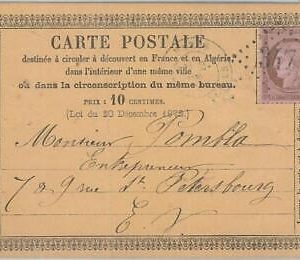 CARTE POSTALE
destinée à circuler à découvert en France et en Algérie,
dans l'intérieur d'une même ville
ou dans la circonscription du même bureau.
PRIX : 10 CENTIMES.
(Loi du 20 Décembre 1872.)
Monsieur Pombla
Entrepreneur
7 & 9 rue St Petersbourg
E. V.